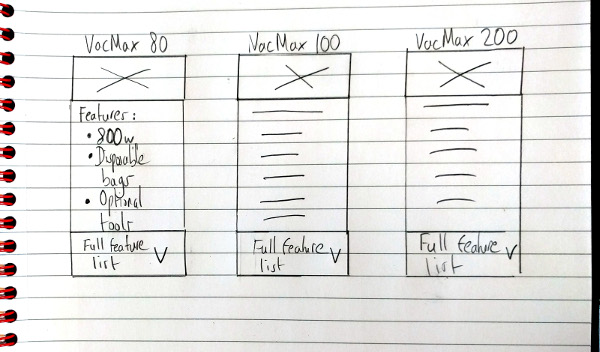 VacMax 80
VacMax 100
VacMax 200
Features:
• 800w
• Disposable
bags
• Optional
tools
Full feature
list
Full feature
list
Full feature
list